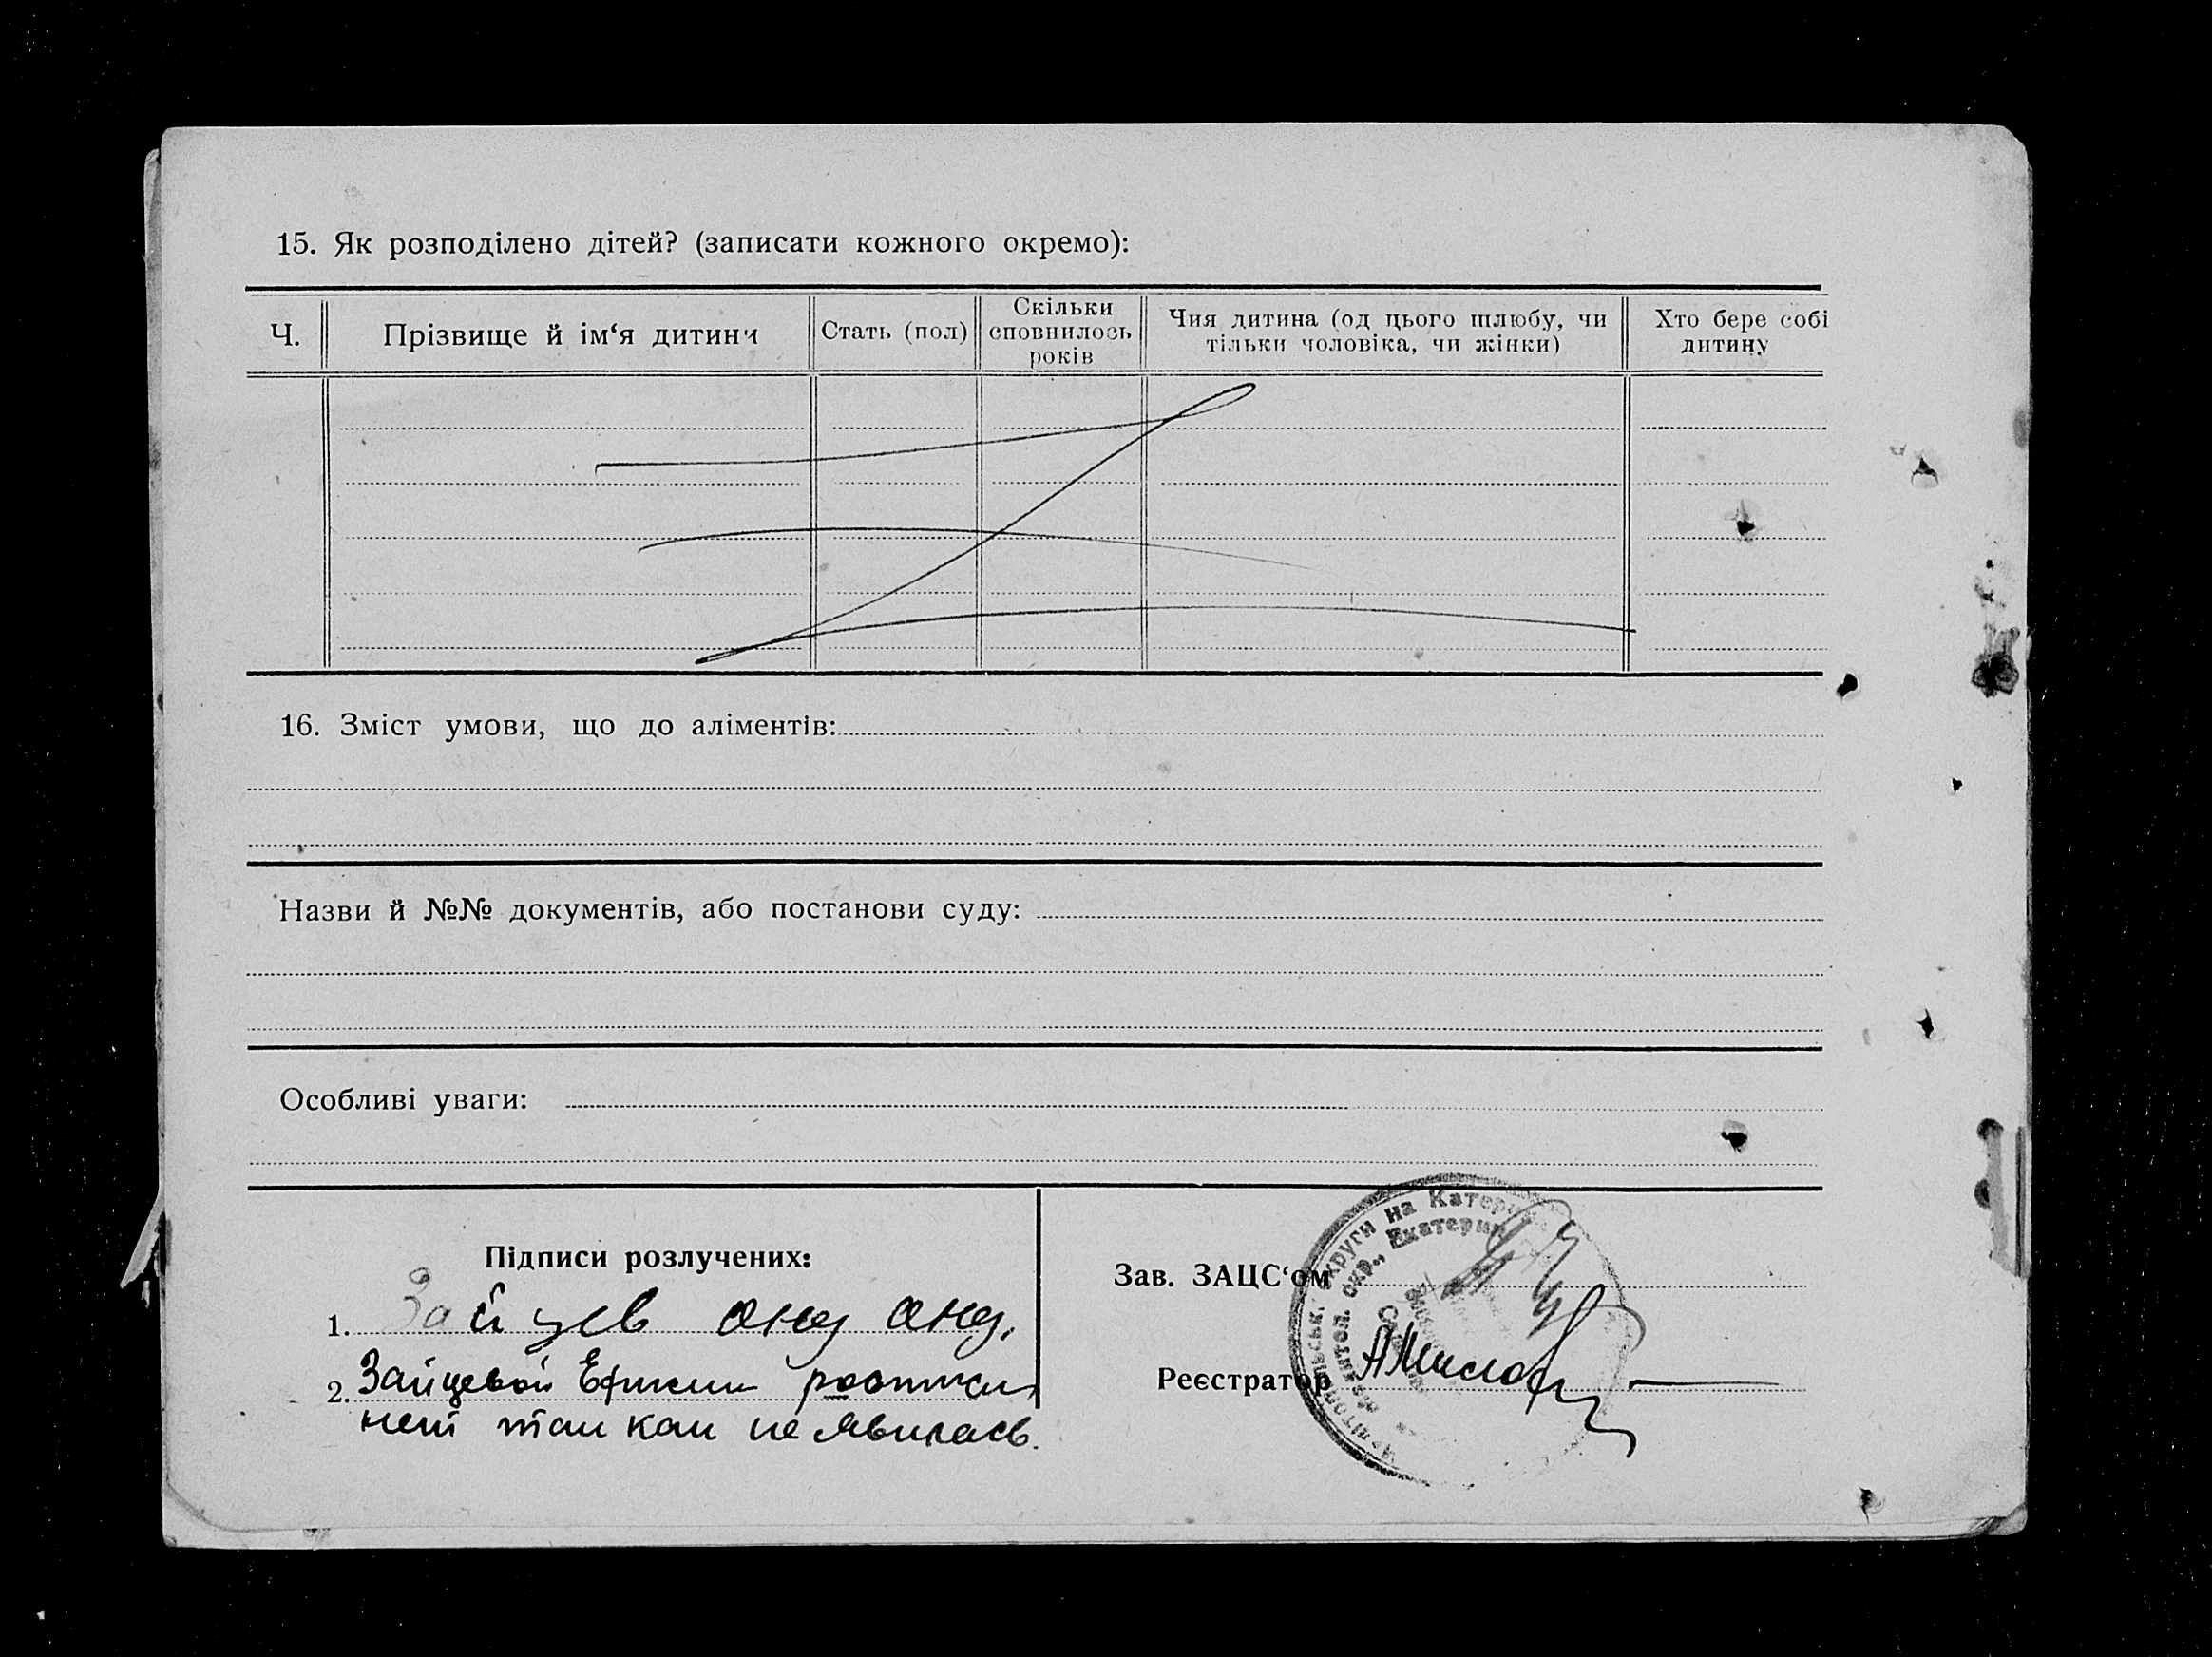 15. Як розподілено дітей? (записати кожного окремо):
Ч.
Прізвище й ім‘я дитини
Стать (пол)
Скільки сповнилось років
Чия дитина (од цього шлюбу, чи тільки чоловіка, чи жінки)
Хто бере собі дитину
16. Зміст умови, що до аліментів:
Назви й №№ документів, або постанови суду:
Особливі уваги:
Підписи розлучених:
1. Зайцев Анд Анд.
2. Зайцевой
нет так как не явилась.
Зав. ЗАЦС‘ом
Реєстратор
округи на Катер
окр., Екатерин